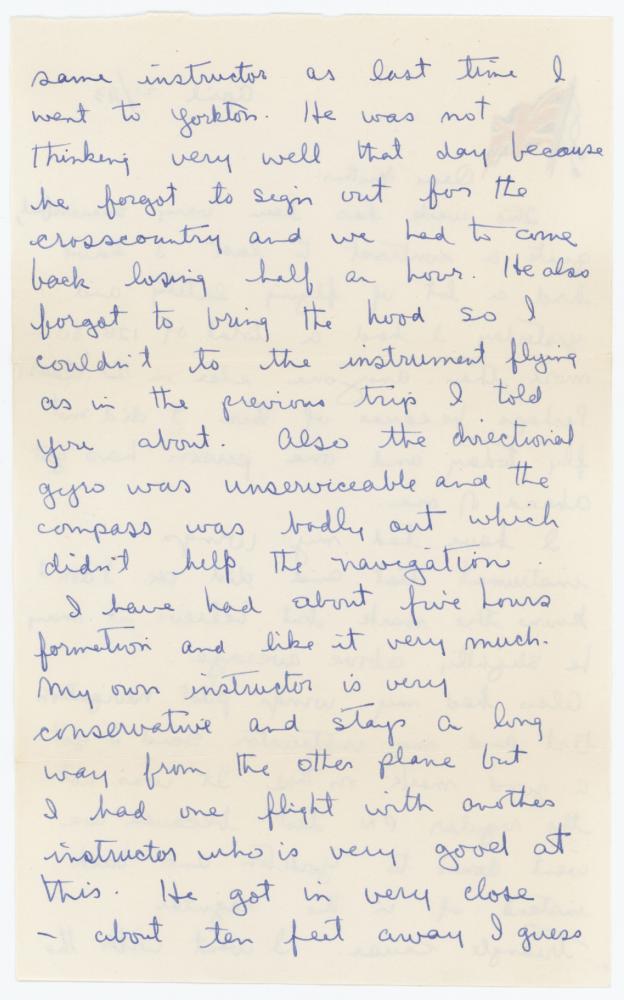 same instructor as last time I
went to Yorkton. He was not
thinking very well that day because
he forgot to sign out for the
crosscountry and we had to come
back losing half an hour. He also
forgot to bring the hood so I
couldn't to the instrument flying
as in the previous trip I told
you about. Also the directional
gyro was unserviceable and the
compass was badly out which
didn't help the navigation
I have had about five hours
formation and like it very much.
My own instructor is very
conservative and stays a long
way from the other plane but
I had one flight with another
instructor who is very good at
this. He got in very close
- about ten feet away I guess